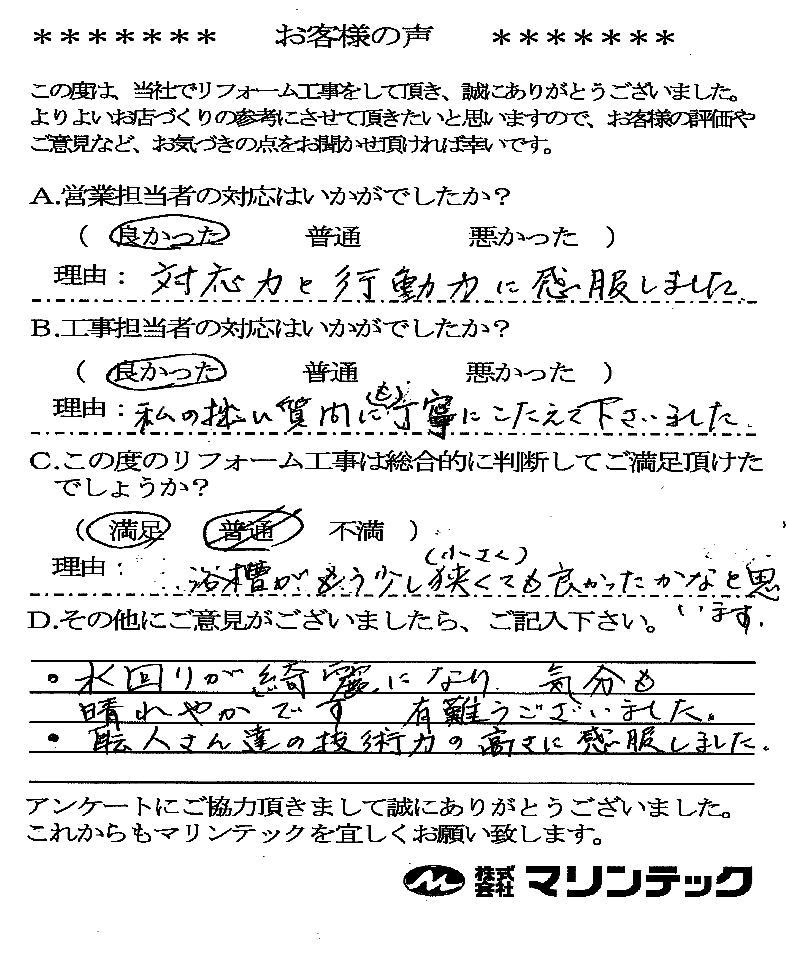 ******* お客様の声 *******
この度は、当社でリフォーム工事をして頂き、誠にありがとうございました。
よりよいお店づくりの参考にさせて頂きたいと思いますので、お客様の評価や
ご意見など、お気づきの点をお聞かせ頂ければ幸いです。
A.営業担当者の対応はいかがでしたか？
( 良かった 普通 悪かった )
理由: 対応力と行動力に感服しました
B.工事担当者の対応はいかがでしたか？
( 良かった 普通 悪かった )
理由: 私の拙い質問に(も)丁寧にこたえて下さいました
C.この度のリフォーム工事は総合的に判断してご満足頂けた
でしょうか？
( 満足 普通 不満 )
(小さく)
理由: 浴槽がもう少し狭くても良かったかなと思
います.
D.その他にご意見がございましたら、ご記入下さい。
・水回りが綺麗になり 気分も
晴れやかです 有難うございました。
・職人さん達の技術力の高さに感服しました.
アンケートにご協力頂きまして誠にありがとうございました。
これからもマリンテックを宜しくお願い致します。
M 株式会社マリンテック